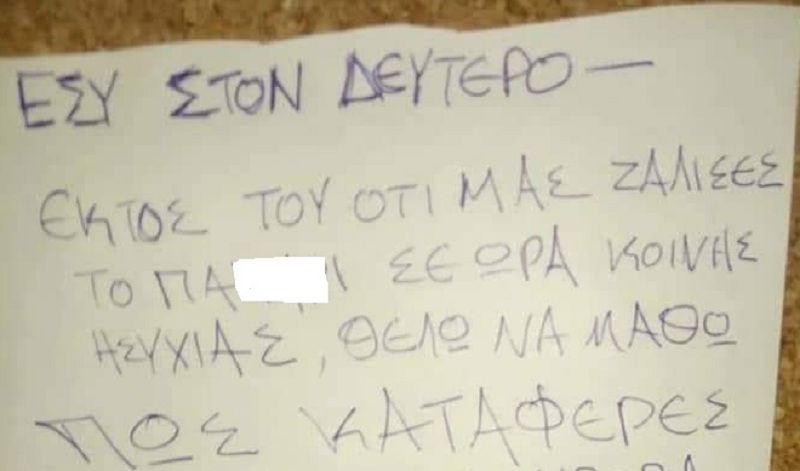 ΕΣΥ ΣΤΟΝ ΔΕΥΤΕΡΟ —
ΕΚΤΟΣ ΤΟΥ ΟΤΙ ΜΑΣ ΖΑΛΙΣΕΣ
ΤΟ ΣΕ ΩΡΑ ΚΟΙΝΗΣ
ΗΣΥΧΙΑΣ, ΘΕΛΩ ΝΑ ΜΑΘΩ
ΠΩΣ ΚΑΤΑΦΕΡΕΣ